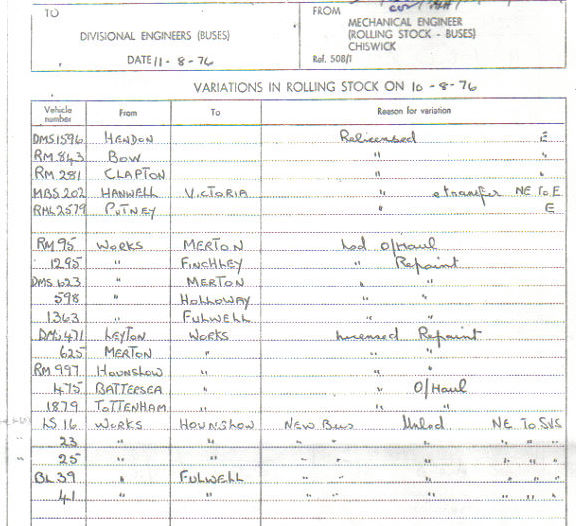 TO FROM MECHANICAL ENGINEER
DIVISIONAL ENGINEERS (BUSES) (ROLLING STOCK - BUSES)
CHISWICK
DATE 11-8-76 Ref. 508/1
VARIATIONS IN ROLLING STOCK ON 10-8-76
Vehicle number From To Reason for variation
DMS1596 HENDON Relicensed E
RM 843 BOW " "
RM 281 CLAPTON " "
MBS 202 HANWELL VICTORIA " & transfer NE To E
RML2579 PUTNEY " E
RM 95 WORKS MERTON Lod O/Haul
1295 " FINCHLEY " Repaint
DMS 623 " MERTON " "
598 " HOLLOWAY " "
1363 " FULWELL " "
DMS 471 LEYTON WORKS Licensed Repaint
625 MERTON " " "
RM 997 HOUNSLOW " " "
475 BATTERSEA " " O/Haul
1879 TOTTENHAM " " "
LS 16 WORKS HOUNSLOW NEW Bus Unlod. NE To SVS
" 23 " " " " " " " "
" 25 " " " " " " " "
BL 39 " FULWELL " " " " " "
41 " " " " " " " "